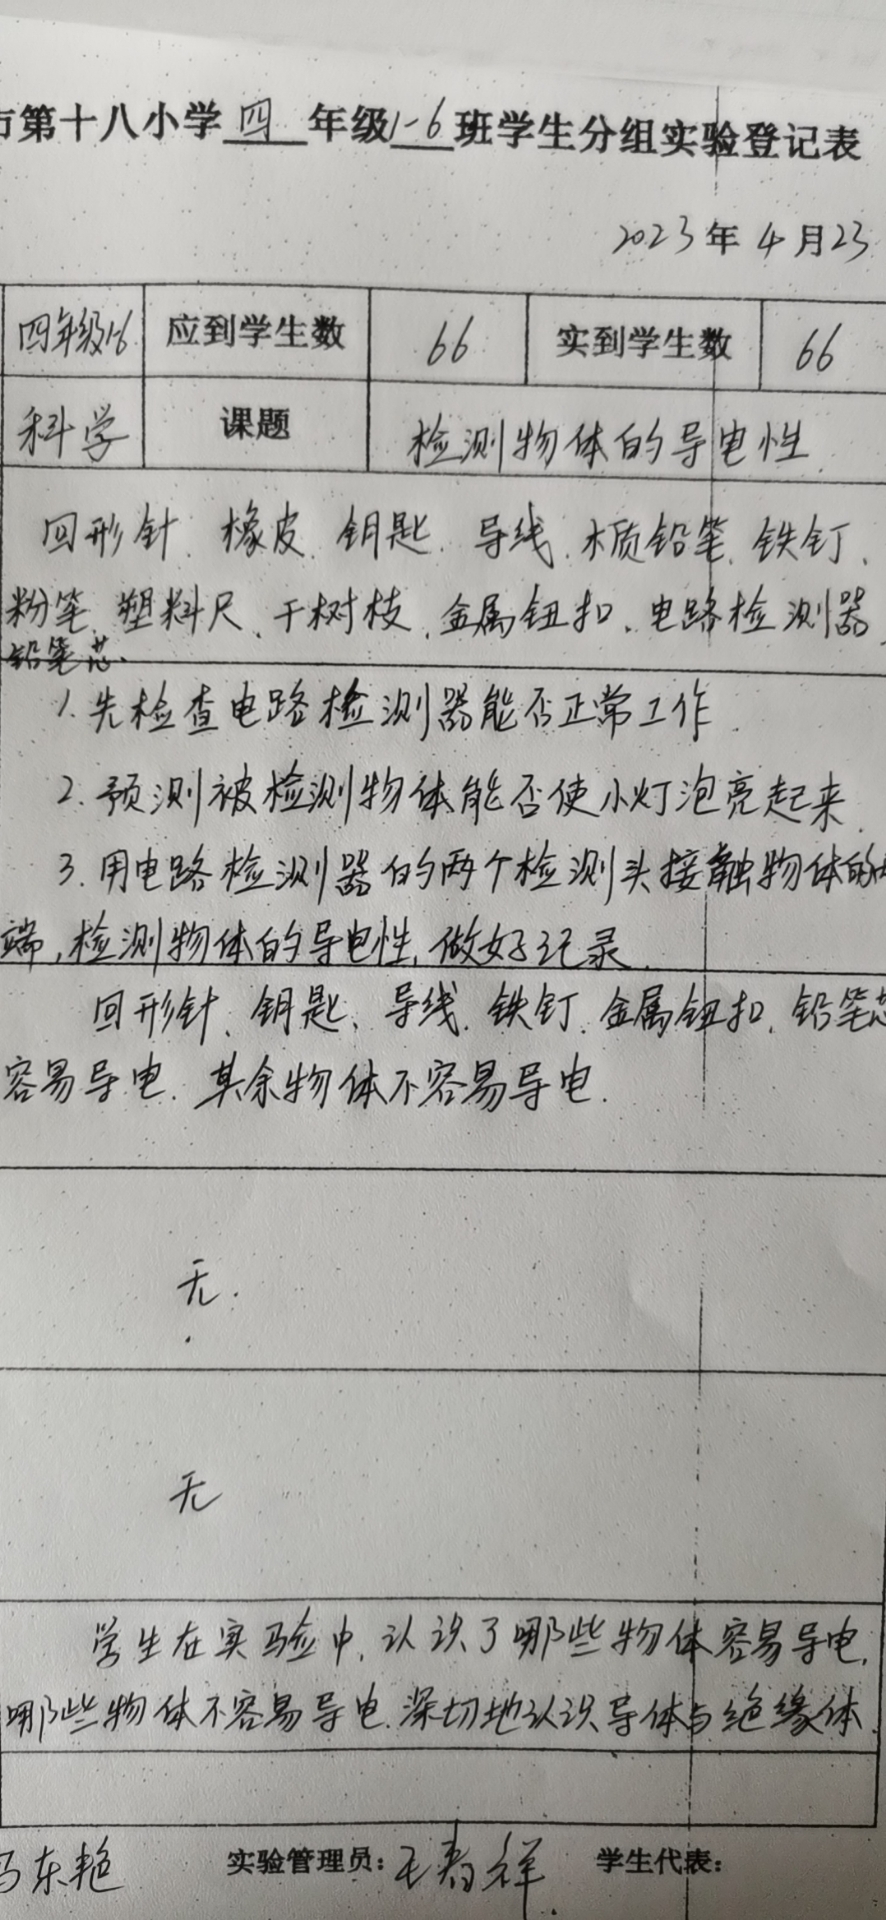 市第十八小学四年级1-6班学生分组实验登记表
2023年4月23
四年级1-6 应到学生数 66 实到学生数 66
科学 课题 检测物体的导电性
回形针、橡皮、钥匙、导线、木质铅笔、铁钉、
粉笔、塑料尺、干树枝、金属钮扣、电路检测器、
铅笔芯、
1.先检查电路检测器能否正常工作.
2.预测被检测物体能否使小灯泡亮起来.
3.用电路检测器的两个检测头接触物体的两
端,检测物体的导电性,做好记录.
回形针、钥匙、导线、铁钉、金属钮扣、铅笔芯
容易导电.其余物体不容易导电.
无.
无
学生在实验中,认识了哪些物体容易导电,
哪些物体不容易导电.深切地认识导体与绝缘体
冯东艳 实验管理员: 王春祥 学生代表: